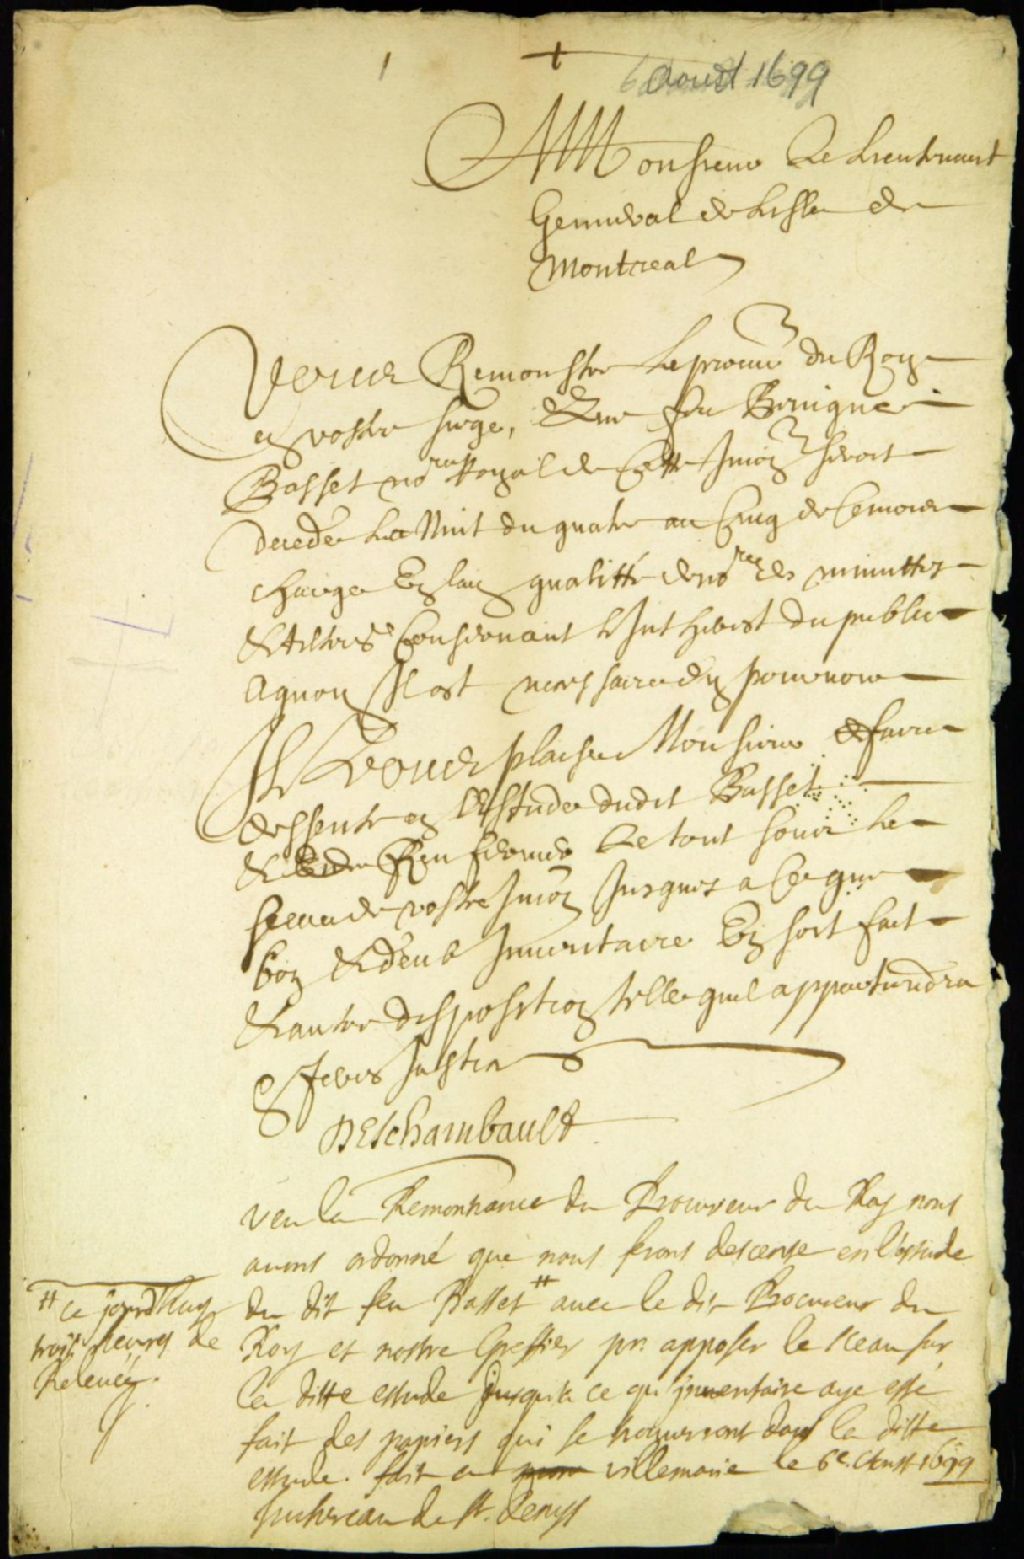 6 aoust 1699
A Monsieur Le Lieutenant
General de Lisle de
Montreal
Vous Remonstre Le procur du Roy
en vostre siege, Que feu Benigne
Basset nore Royal de Cette Juron seroit
decedé La Nuit du quatre au Cinq de Ce mois
charge En lad qualitté de nore des minuttes
& Actes Consernant L'Intherest du public
Aquoy Il est necessaire de pourvoir
Il Vous plaise Monsieur faire
dessente en L'Estude dudit Basset
& Renfermer Le tout soubs Le
sceau de vostre Juron Jusques a Ce que
bon & deub Inventaire En soit fait
& autre disposition telle quil appartiendra
& Ferés Justice
Deschambault
Veu la Remontrance du Procureur du Roy nous
avons ordonné que nous ferons descense en l'estude
du dit feu Basset # avec le dit Procureur du
Roy et nostre Greffier pr. apposer le sceau sur
la ditte estude jusqu'a ce qu'inventaire aye esté
fait des papiers qui se trouverront dans la ditte
estude. fait a villemarie le 6e. Aoust 1699
Juchereau de St. Denys
# ce jourd'huy
trois heures de
Relevée.